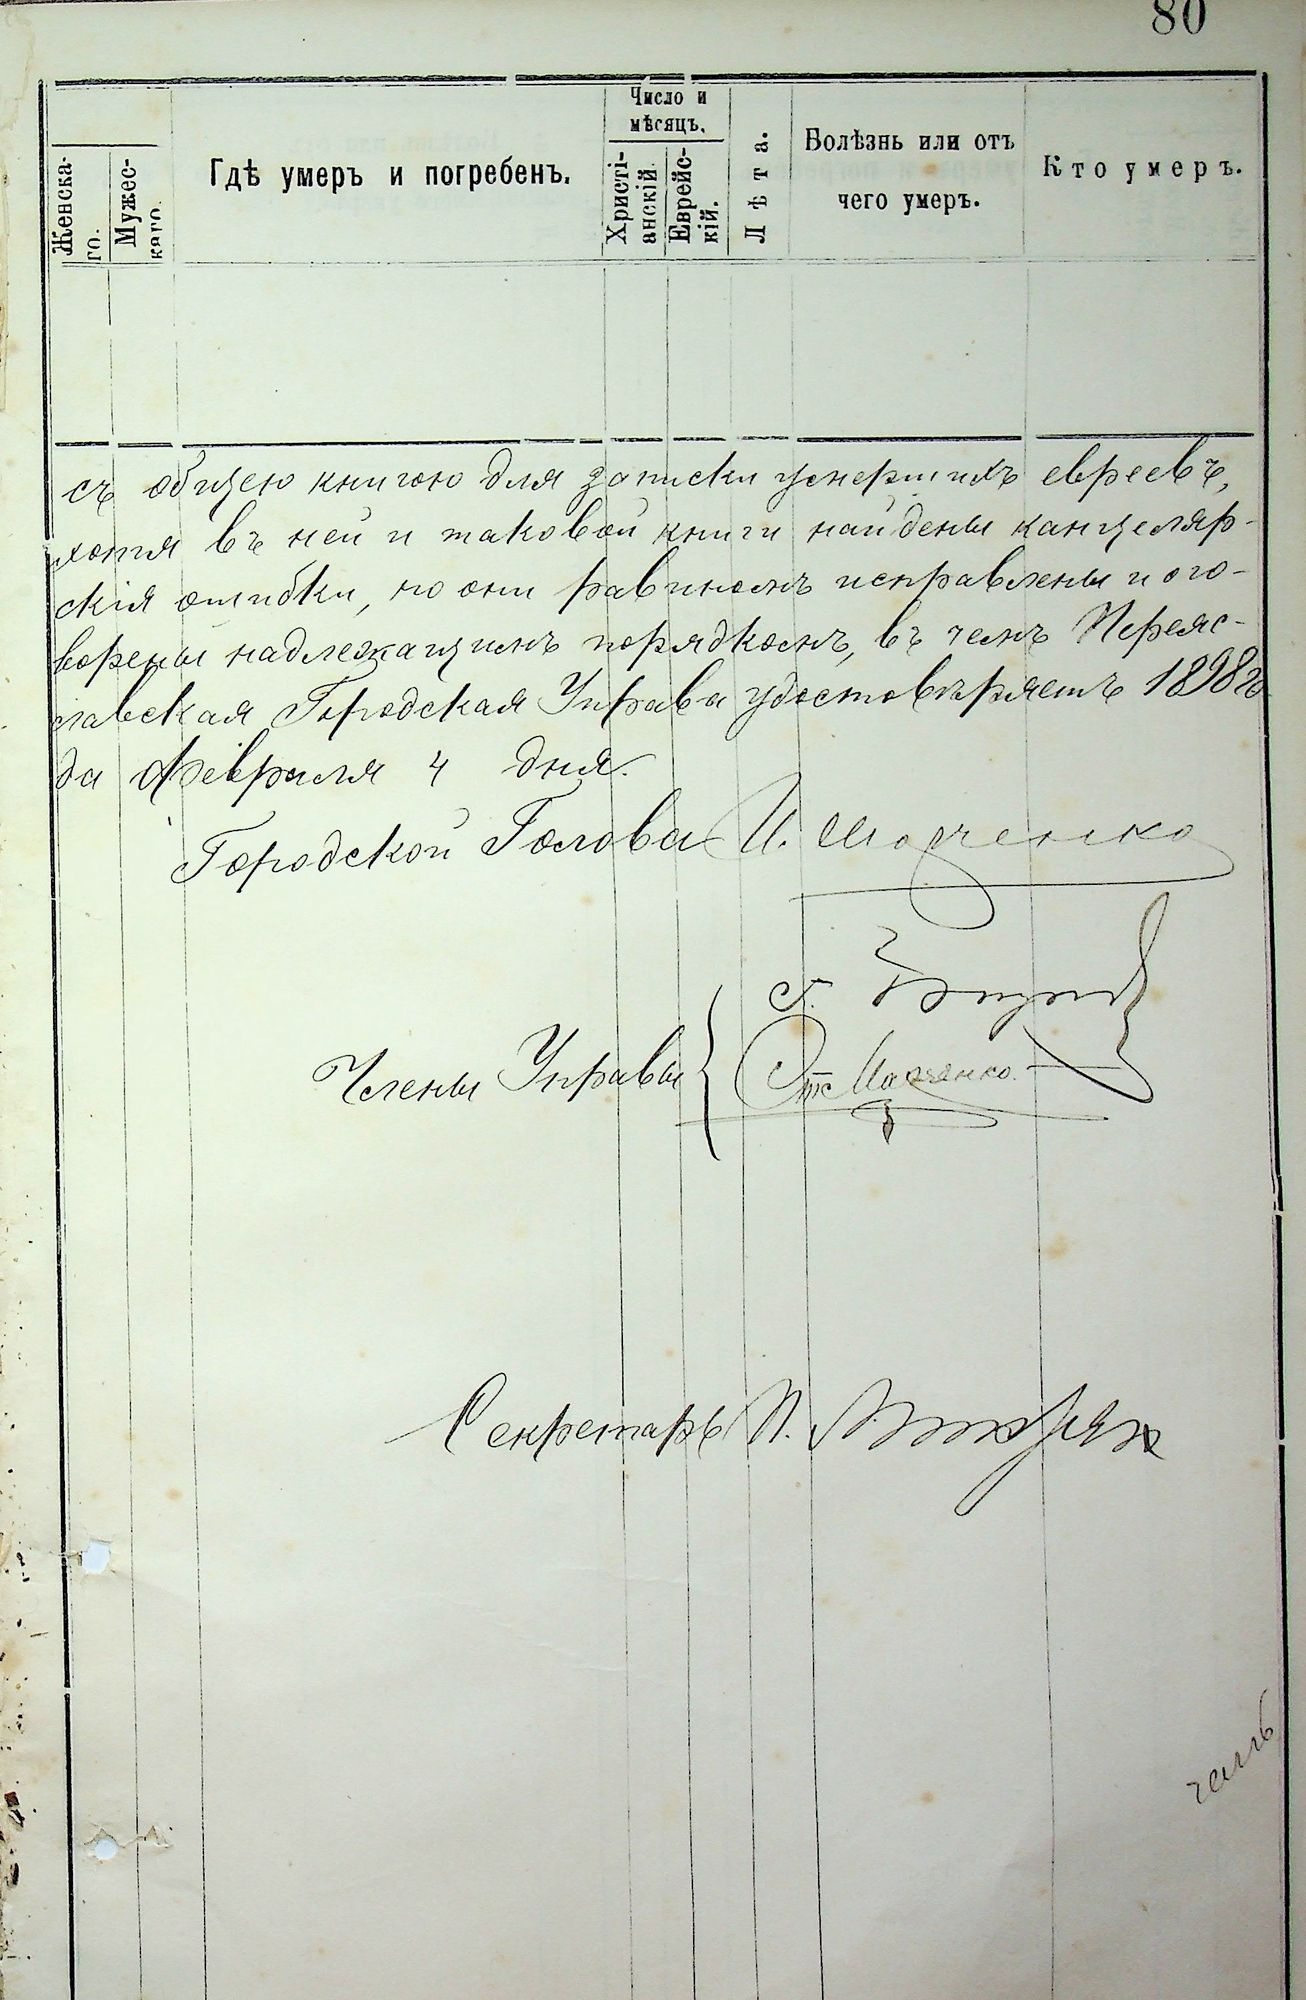 80
Женска-
го.
Мужес-
каго.
Гдѣ умеръ и погребенъ.
Число и
мѣсяцъ.
Христі-
анскій.
Еврейс-
кій.
Лѣта.
Болѣзнь или отъ
чего умеръ.
Кто умеръ.
съ общею книгою для записки умершихъ евреевъ,
хотя въ ней и таковой книги найдены канцеляр-
скія ошибки, но они равиномъ исправлены и ого-
ворены надлежащимъ порядкомъ, въ чемъ Переяс-
лавская Городская Управа удостовѣряетъ 1898 го
да февраля 4 дня.
Городской Голова И.
Члены Управы
Секретарь П.